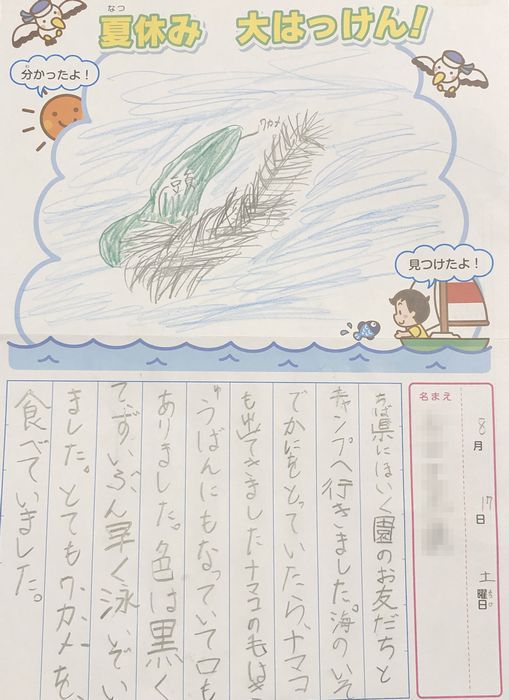 夏休み 大はっけん!
なつ
分かったよ!
ワカメ
見つけたよ!
名まえ
8月17日 土曜日
ようび
ちば県にほいく園のお友だちと
キャンプへ行きました。海のいそ
でかにをとっていたら、ナマコ
も出てきましたナマコの毛はき
ゅうばんにもなっていて口も
ありました。色は黒く
て、ずいぶん早く泳いでい
ました。とてもワカメを、
食べていました。